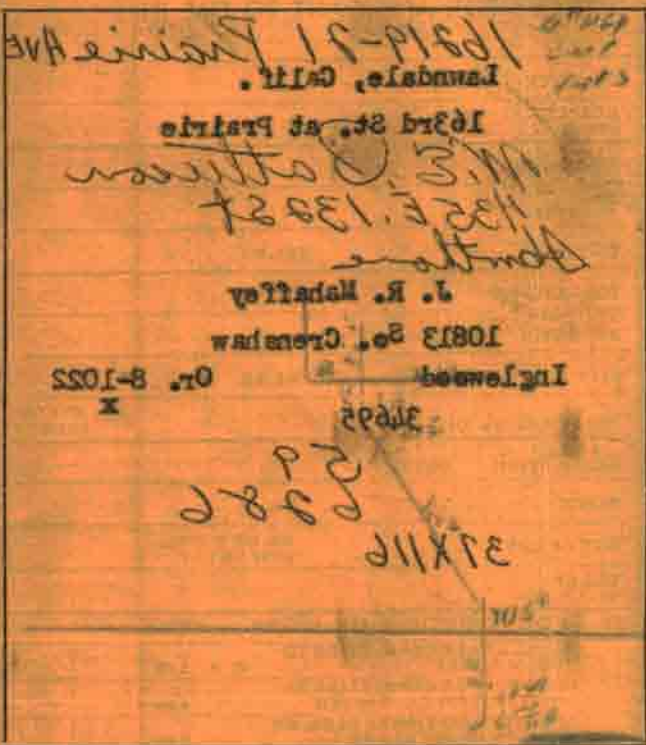 16219-21 Prairie AVE
Lawndale, Calif.
163rd St. at Prairie
M.E.
435 E. 132 St
J. R. Mahaffey
10813 So. Crenshaw
Inglewood Or. 8-1022
x
34695
59
6286
37X116